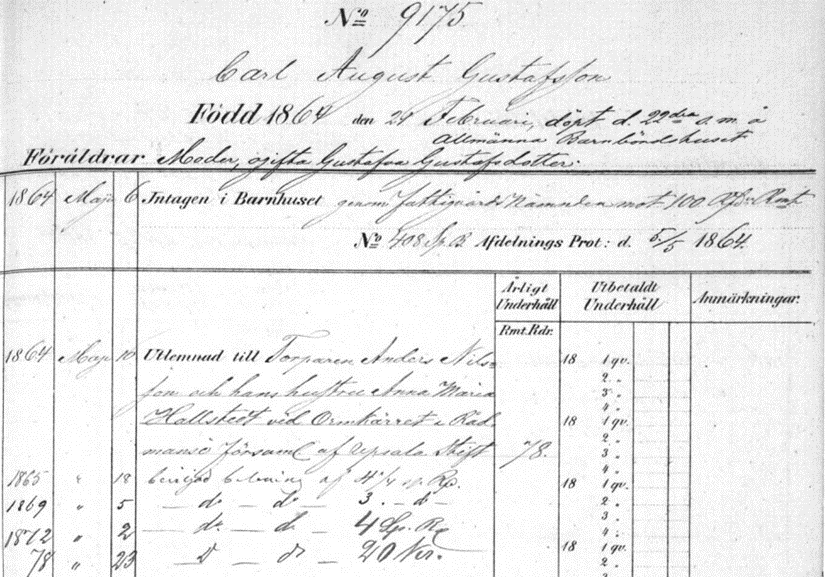 No 9175
Carl August Gustafsson
Född 1864 den 21 Februari, döpt d. 22dra s. m. å
Allmänna Barnbördshuset
Föräldrar Moder, ogifta Gustafva Gustafsdotter.
1864 Maj 6 Intagen i Barnhuset genom fattigvårds Nämnden mot 100 Rdr Rmt
No 408 Sp. B. Afdelnings Prot: d. 5/5 1864.
Årligt Underhåll Utbetaldt Underhåll Anmärkningar.
Rmt. Rdr.
1864 Maj 10 Utlemnad till Torparen Anders Nils- 18 1 qv.
2 „
son och hans hustru Anna Maria 3 „
4 „
Hallstedt vid Ormkärret i Råd- 18 1 qv.
2 „
mansö Församl af Upsala Stift 78. 3 „
4 „
1865 „ 18 beviljad belöning af 4 1/4 sp. Rd. 18 1 qv.
2 „
1869 „ 5 — do — do — 3 . — do —
3 „
1872 „ 2 — do — do — 4 Sp. Rd 4 „
78 „ 23 — d — do 20 Kr. 18 1 qv.
2 „